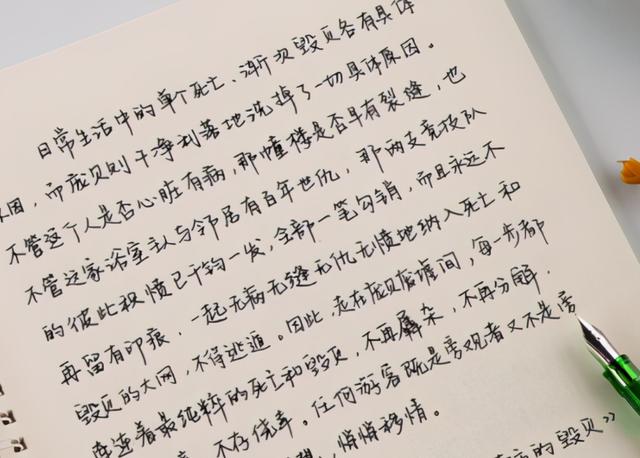 日常生活中的单个死亡、渐次毁灭各有具体
原因，而庞贝则干净利落地洗掉了一切具体原因。
不管这个人是否心脏有病，那幢楼是否早有裂缝，也
不管这家浴室主人与邻居有百年世仇，那两支竞技队
的彼此积愤已千钧一发，全部一笔勾销，而且永远不
再留有印痕，一起无病无缝无仇无愤地纳入死亡和
毁灭的大网，不得逃遁。因此，走在庞贝废墟间，每一步都
牵连着最纯粹的死亡和毁灭，不再羼杂，不再分解，
不存侥幸。任何游客既是旁观者又不是旁
悄悄移情。
的毁灭》